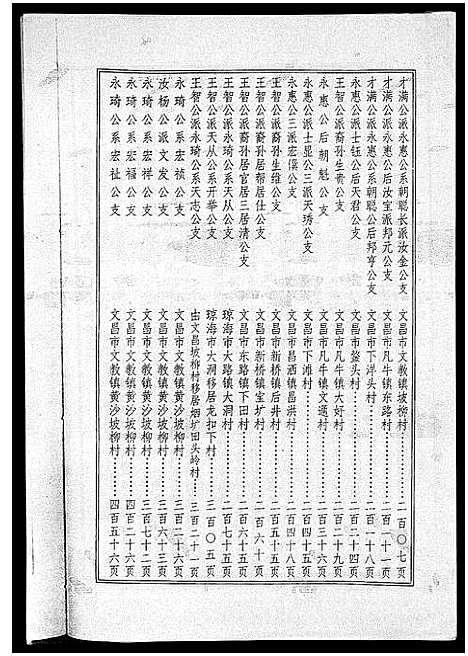 才满公派永惠公系朝聪长派汝金公支 文昌市文教镇坡柳村……二百〇七页
才满公派永惠公后汝宝派邦元公支 文昌市凡牛镇东路村……二百一十一页
才满公派永惠公系朝聪公后邦亨公支 文昌市下洋头村……二百一十八页
永惠公派士钰公后天君公支 文昌市鳌头村……二百二十四页
王智公派裔孙生贵公支 文昌市凡牛镇大好村……二百二十九页
永惠公后朝魁公支 文昌市凡牛镇文通村……二百三十六页
永惠公派士显公三派天琇公支 文昌市下滩村……二百四十五页
永惠公三派宏僕公支 文昌市昌洒镇昌洪村……二百四十八页
王智公派裔孙生维公支 文昌市新桥镇后井村……二百五十五页
王智公派裔孙居帮居仕公支 文昌市新桥镇宝圹村……二百六十页
王智公派裔孙居官居三居清公支 文昌市东路镇下田村……二百六十五页
王智公派永琦公系天从公支 琼海市大路镇大洞村……二百七十五页
王智公派天从公系开举公支 琼海市大洞移居龙扣下村……三百〇五页
王智公派永琦公系天志公支 由文昌坡柳村移居烟圹田头岭村……三百二十一页
永琦公系宏祯公支 文昌市文教镇黄沙坡柳村……三百二十六页
汝杨公派文发公支 文昌市文教镇黄沙坡柳村……三百六十三页
永琦公系宏祥公支 文昌市文教镇黄沙坡柳村……三百七十二页
永琦公系宏福公支 文昌市文教镇黄沙坡柳村……四百二十六页
永琦公系宏祉公支 文昌市文教镇黄沙坡柳村……四百五十六页